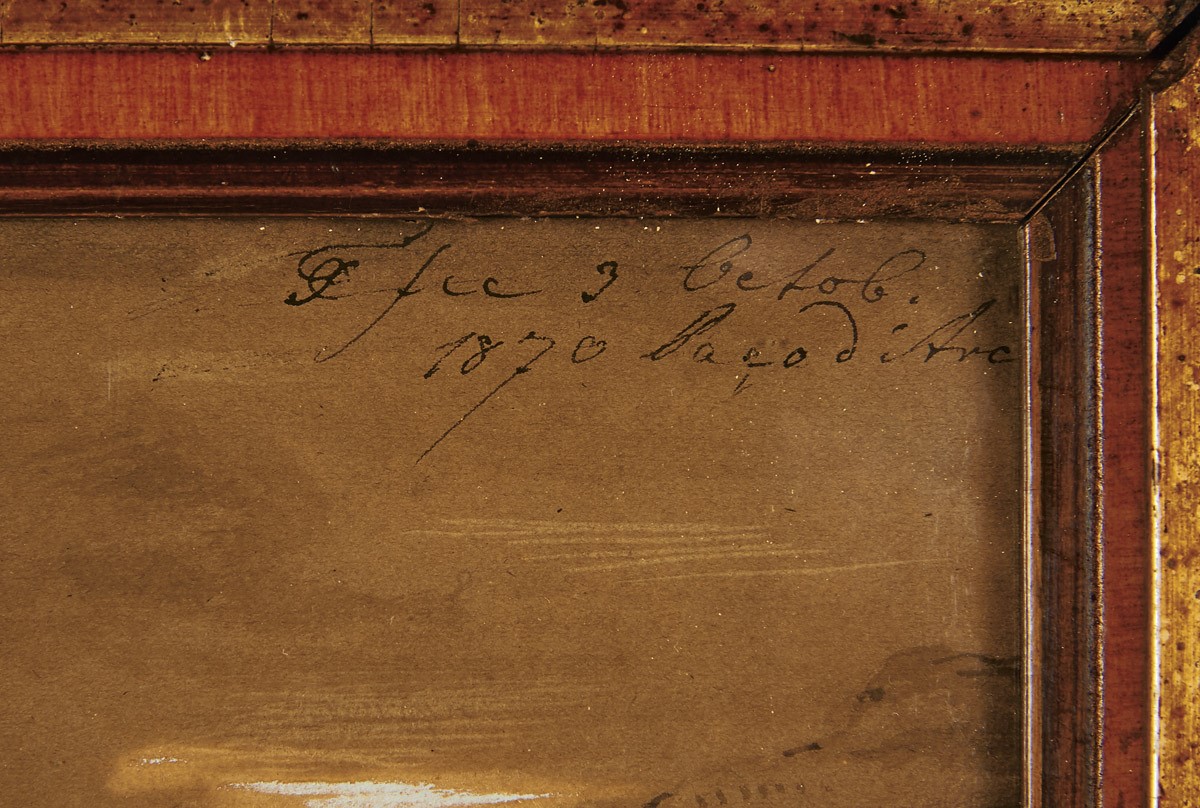 fec 3 Octob.
1870 Paço d'Arc